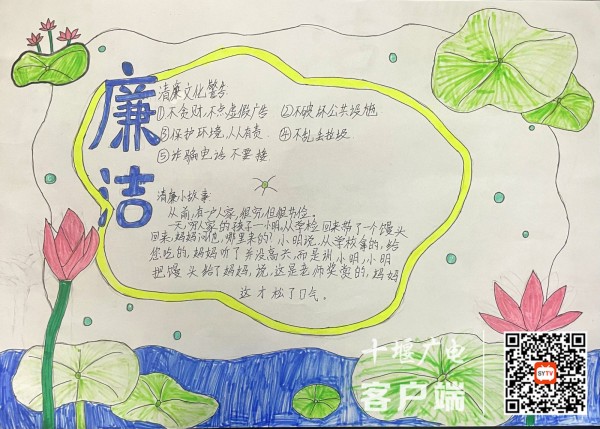 廉洁
清廉文化警句:
①不贪财,不点虚假广告 ②不破坏公共设施
③保护环境,人人有责 ④不乱丢垃圾
⑤诈骗电话不要接
清廉小故事:
从前,有一户人家,很穷,但很节俭。
一天,穷人家的孩子—小明,从学校回来带了一个馒头
回来,妈妈问他,哪里来的?小明说,从学校拿的,给
您吃的,妈妈听了并没高兴,而是训小明,小明
把馒头给了妈妈,说,这是老师奖赏的,妈妈
这才松了口气。
十堰广电
客户端
SYTV